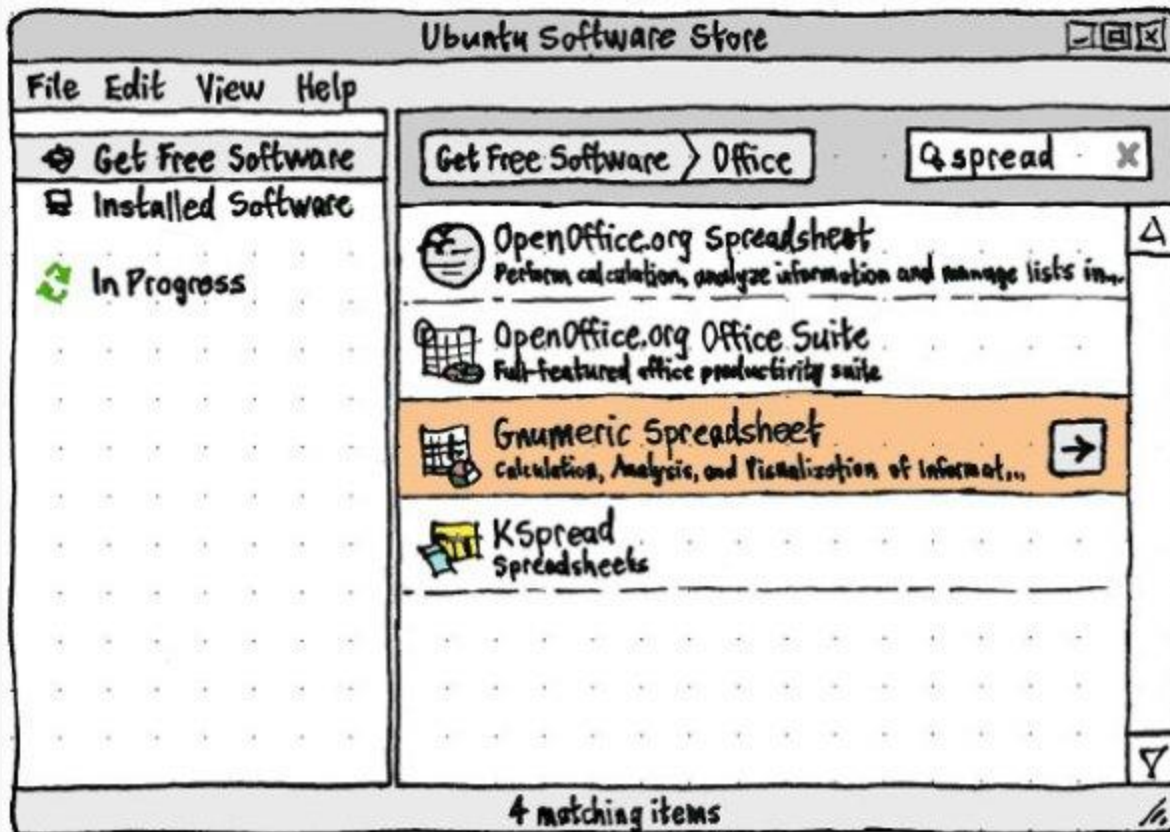 Ubuntu Software Store
File Edit View Help
Get Free Software
Installed Software
In Progress
Get Free Software Office
spread
OpenOffice.org Spreadsheet
Perform calculation, analyze information and manage lists in...
OpenOffice.org Office Suite
Full-featured office productivity suite
Gnumeric Spreadsheet
Calculation, Analysis, and Visualization of Informat...
KSpread
Spreadsheets
4 matching items